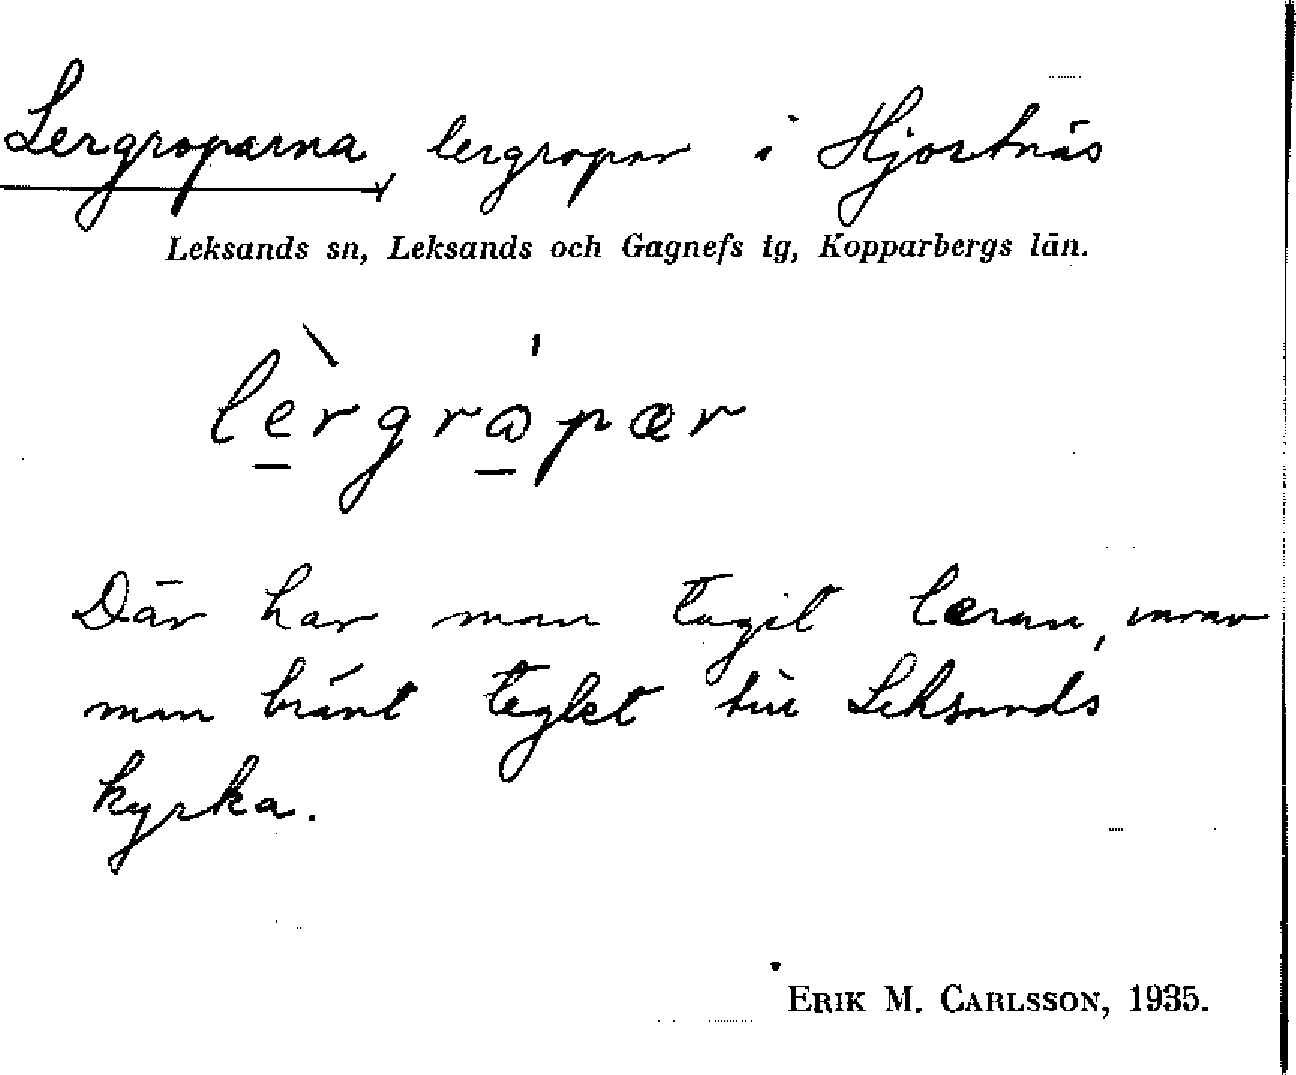 Lergroparna lergropar i Hjortnäs
Leksands sn, Leksands och Gagnefs tg, Kopparbergs län.
lèrgrɷ́pær
Där har man tagit leran, varav
man bränt teglet till Leksands
kyrka.
ERIK M. CARLSSON, 1935.